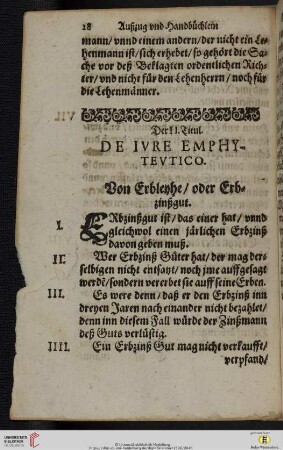 18 Außzug vnd Handbüchlein
mann/ vnnd einem andern/ der nicht ein Le-
henmann ist/ sich erhebet/ so gehört die Sa-
che vor deß Beklagten ordentlichen Rich-
ter/ vnd nicht für den Lehenherrn/ noch für
die Lehenmänner.
Der II. Titul.
DE IVRE EMPHY-
TEVTICO.
Von Erbleyhe/ oder Erb-
zinßgut.
I. ERbzinßgut ist/ das einer hat/ vnnd
gleichwol einen järlichen Erbzinß
davon geben muß.
II. Wer Erbzinß Güter hat/ der mag der
selbigen nicht entsayt/ noch jme auffgesagt
werdē/ sondern vererbet sie auff seine Erben.
III. Es were denn/ daß er den Erbzinß inn
dreyen Jaren nach einander nicht bezahlet/
denn inn diesem Fall würde der Zinßmann
deß Guts verlüstig.
IIII. Ein Erbzinß Gut mag nicht verkaufft/
verpfand/